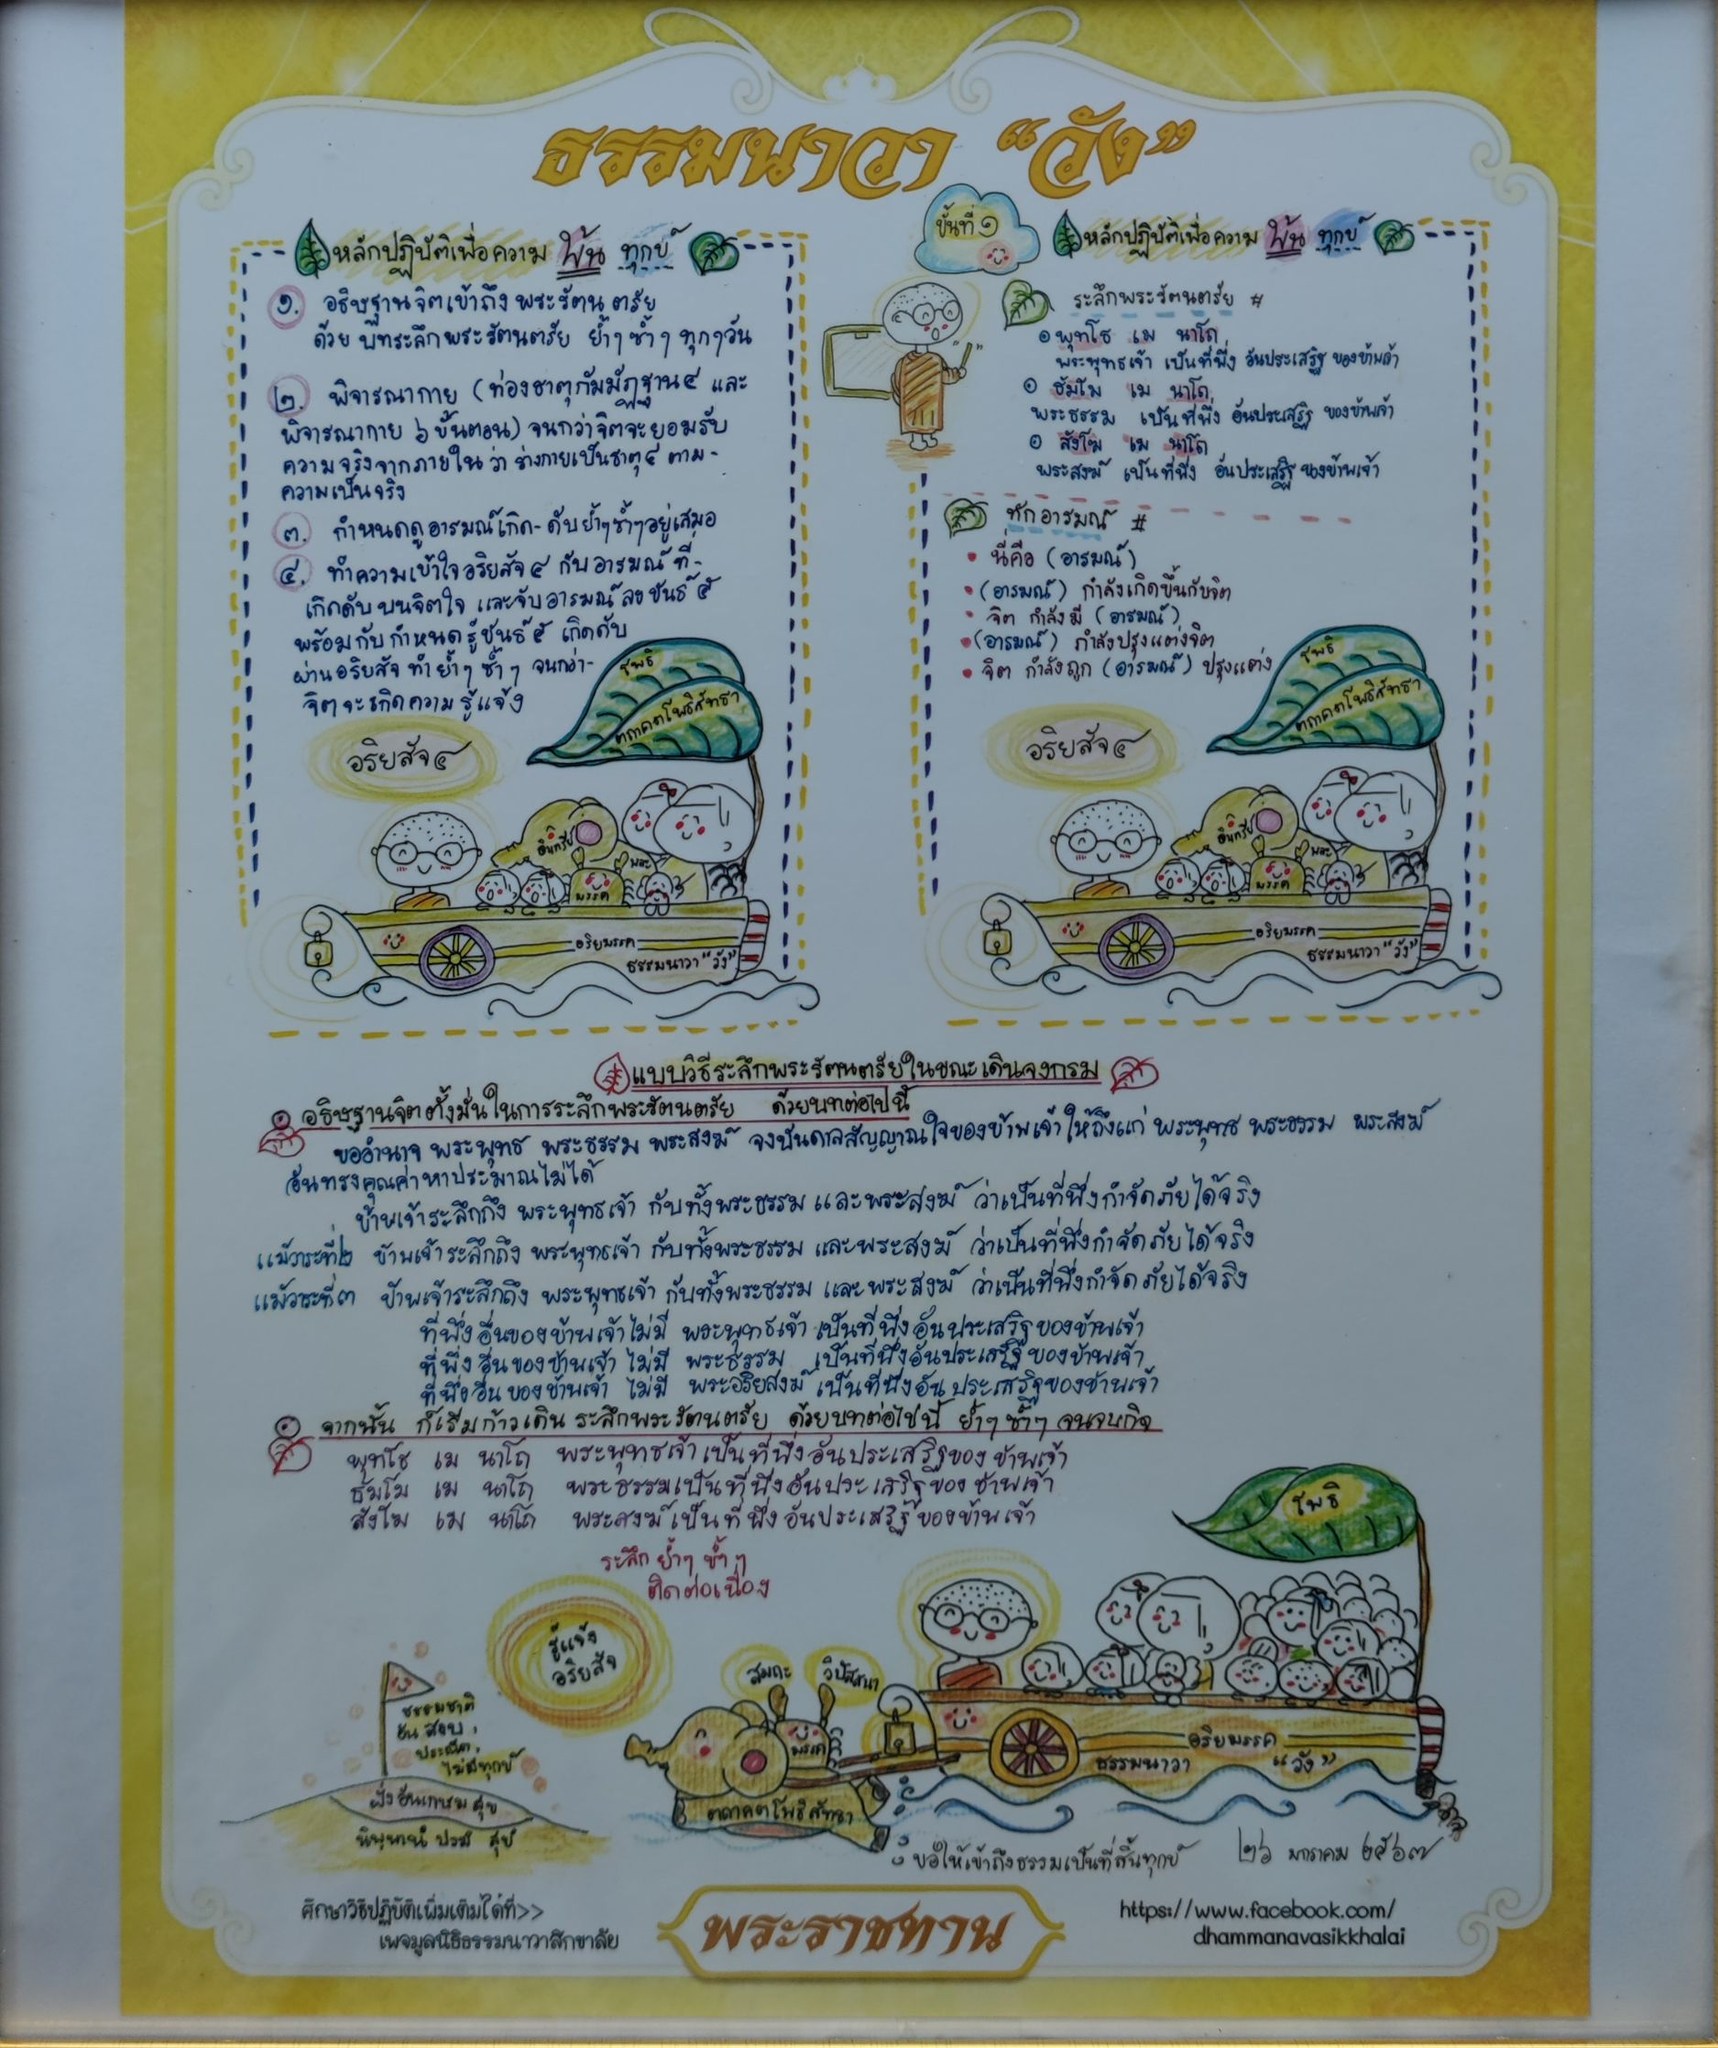 ธรรมนาวา "วัง"
หลักปฏิบัติเพื่อความ พ้น ทุกข์
๑. อธิษฐานจิตเข้าถึง พระรัตนตรัย
ด้วย บทระลึกพระรัตนตรัย ย้ำๆ ซ้ำๆ ทุกๆวัน
๒. พิจารณากาย (ท่องธาตุกัมมัฏฐาน๔ และ
พิจารณากาย ๖ ขั้นตอน) จนกว่าจิตจะยอมรับ
ความจริงจากภายใน ว่า ร่างกายเป็นธาตุ๔ ตาม-
ความเป็นจริง
๓. กำหนดดูอารมณ์เกิด-ดับย้ำๆซ้ำๆอยู่เสมอ
๔. ทำความเข้าใจอริยสัจ๔ กับอารมณ์ ที่-
เกิดดับบนจิตใจ และจับอารมณ์ลงขันธ์ ๕
พร้อมกับกำหนดรู้ขันธ์๕ เกิดดับ
ผ่านอริยสัจ ทำย้ำๆ ซ้ำๆ จนกว่า-
จิตจะเกิดความรู้แจ้ง
โพธิ
ตถาคตโพธิสัทธา
อริยสัจ๔
อินทรีย์
พละ
มรรค
อริยมรรค
ธรรมนาวา "วัง"
ขั้นที่ ๑
หลักปฏิบัติเพื่อความ พ้น ทุกข์
ระลึกพระรัตนตรัย #
พุทโธ เม นาโถ
พระพุทธเจ้า เป็นที่พึ่ง อันประเสริฐ ของข้าพเจ้า
ธัมโม เม นาโถ
พระธรรม เป็นที่พึ่ง อันประเสริฐ ของข้าพเจ้า
สังโฆ เม นาโถ
พระสงฆ์ เป็นที่พึ่ง อันประเสริฐ ของข้าพเจ้า
ทักอารมณ์ #
• นี่คือ (อารมณ์)
• (อารมณ์) กำลังเกิดขึ้นกับจิต
• จิต กำลังมี (อารมณ์)
• (อารมณ์) กำลังปรุงแต่งจิต
• จิต กำลังถูก (อารมณ์) ปรุงแต่ง
โพธิ
ตถาคตโพธิสัทธา
อริยสัจ๔
อินทรีย์
พละ
มรรค
อริยมรรค
ธรรมนาวา "วัง"
แบบวิธีระลึกพระรัตนตรัยในขณะเดินจงกรม
อธิษฐานจิตตั้งมั่นในการระลึกพระรัตนตรัย ด้วยบทต่อไปนี้
ขออำนาจ พระพุทธ พระธรรม พระสงฆ์ จงบันดาลสัญญาณใจของข้าพเจ้าให้ถึงแก่ พระพุทธ พระธรรม พระสงฆ์
อันทรงคุณค่าหาประมาณไม่ได้
ข้าพเจ้าระลึกถึง พระพุทธเจ้า กับทั้งพระธรรม และพระสงฆ์ ว่าเป็นที่พึ่งกำจัดภัยได้จริง
แม้วาระที่๒ ข้าพเจ้าระลึกถึง พระพุทธเจ้า กับทั้งพระธรรม และพระสงฆ์ ว่าเป็นที่พึ่งกำจัดภัยได้จริง
แม้วาระที่๓ ข้าพเจ้าระลึกถึง พระพุทธเจ้า กับทั้งพระธรรม และพระสงฆ์ ว่าเป็นที่พึ่งกำจัดภัยได้จริง
ที่พึ่งอื่นของข้าพเจ้าไม่มี พระพุทธเจ้า เป็นที่พึ่งอันประเสริฐของข้าพเจ้า
ที่พึ่งอื่นของข้าพเจ้า ไม่มี พระธรรม เป็นที่พึ่งอันประเสริฐของข้าพเจ้า
ที่พึ่งอื่นของข้าพเจ้า ไม่มี พระอริยสงฆ์ เป็นที่พึ่งอันประเสริฐของข้าพเจ้า
จากนั้น ก็เริ่มก้าวเดิน ระลึกพระรัตนตรัย ด้วยบทต่อไปนี้ ย้ำๆ ซ้ำๆ จนจบกิจ
พุทโธ เม นาโถ พระพุทธเจ้าเป็นที่พึ่งอันประเสริฐของ ข้าพเจ้า
ธัมโม เม นาโถ พระธรรมเป็นที่พึ่งอันประเสริฐของ ข้าพเจ้า
สังโฆ เม นาโถ พระสงฆ์เป็นที่พึ่งอันประเสริฐของข้าพเจ้า
ระลึก ย้ำๆ ซ้ำๆ
ติดต่อเนื่อง
โพธิ
รู้แจ้ง
อริยสัจ
สมถะ
วิปัสสนา
มรรค
ธรรมชาติ
อันสงบ,
ประณีต,
ไม่มีทุกข์
ฝั่งอันเกษม สุข
นิพพานํ ปรมํ สุขํ
ตถาคตโพธิสัทธา
อริยมรรค
ธรรมนาวา "วัง"
ขอให้เข้าถึงธรรมเป็นที่สิ้นทุกข์ ๒๖ มกราคม ๒๕๖๗
ศึกษาวิธีปฏิบัติเพิ่มเติมได้ที่>>
เพจมูลนิธิธรรมนาวาสิกขาลัย
พระราชทาน
https://www.facebook.com/
dhammanavasikkhalai